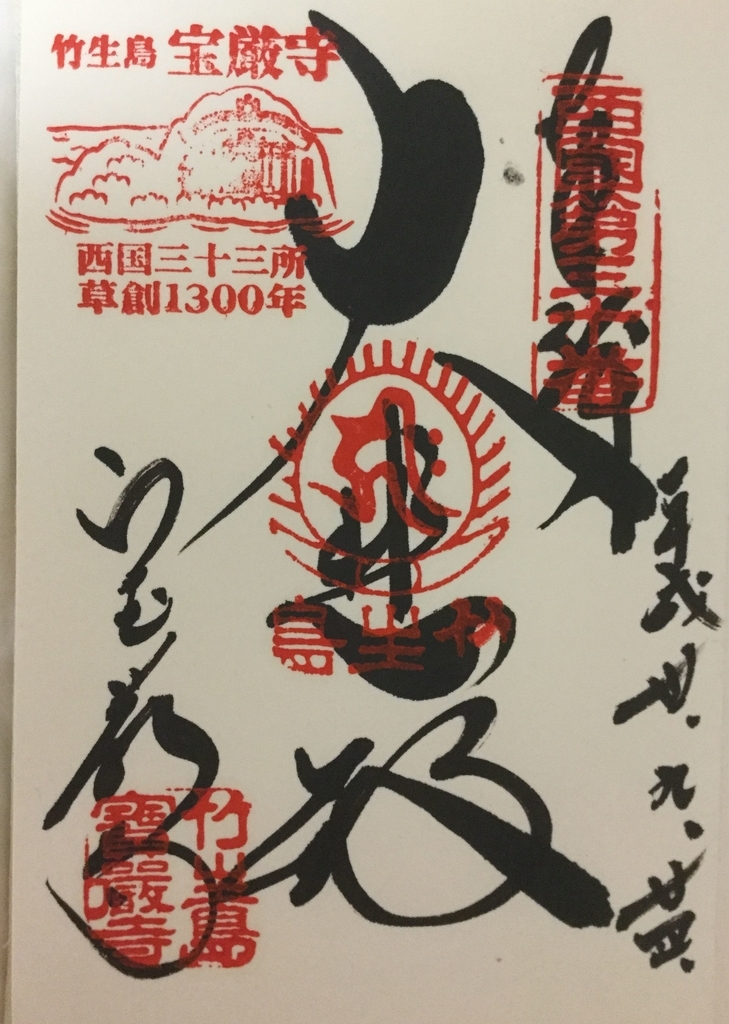 奉拝
西國第三十番
平成丗.九.廿四.
大悲殿
竹生島
竹生島 宝厳寺
西国三十三所
草創1300年
宝厳寺
竹生島
寶嚴寺